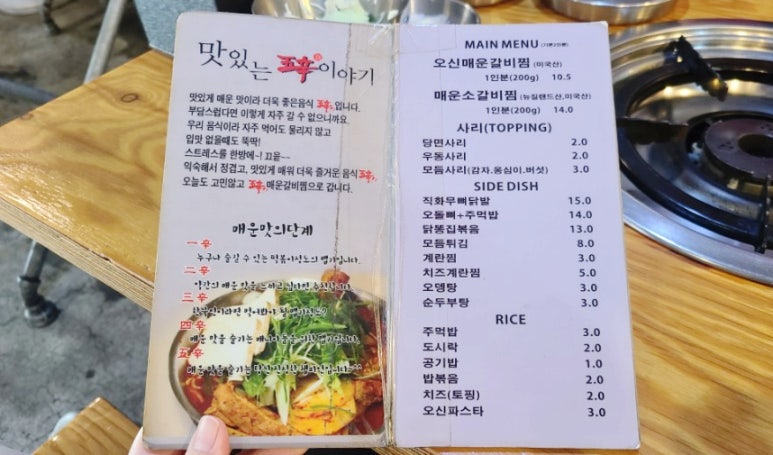 맛있는 五辛 이야기
맛있게 매운 맛이라 더욱 좋은음식 五辛입니다.
부담스럽다면 이렇게 자주 갈 수 없으니까요.
우리 음식이라 자주 먹어도 물리지 않고
입맛 없을때도 뚝딱!
스트레스를 한방에~! 끄읕~~
익숙해서 정겹고, 맛있게 매워 더욱 즐거운 음식 五辛
오늘도 고민않고 五辛매운갈비찜으로 갑니다.
매운맛의단계
一辛
누구나 즐길 수 있는
二辛
약간의 매운 맛을
三辛
四辛
매운 맛을 즐기는
五辛
매운 맛을 즐기는 당신
MAIN MENU (기본2인분)
오신매운갈비찜 (미국산)
1인분(200g) 10.5
매운소갈비찜 (뉴질랜드산,미국산)
1인분(200g) 14.0
사리(TOPPING)
당면사리 2.0
우동사리 2.0
모듬사리(감자,옹심이,버섯) 3.0
SIDE DISH
직화무뼈닭발 15.0
오돌뼈+주먹밥 14.0
닭똥집볶음 13.0
모듬튀김 8.0
계란찜 3.0
치즈계란찜 5.0
오뎅탕 3.0
순두부탕 3.0
RICE
주먹밥 3.0
도시락 2.0
공기밥 1.0
밥볶음 2.0
치즈(토핑) 2.0
오신파스타 3.0